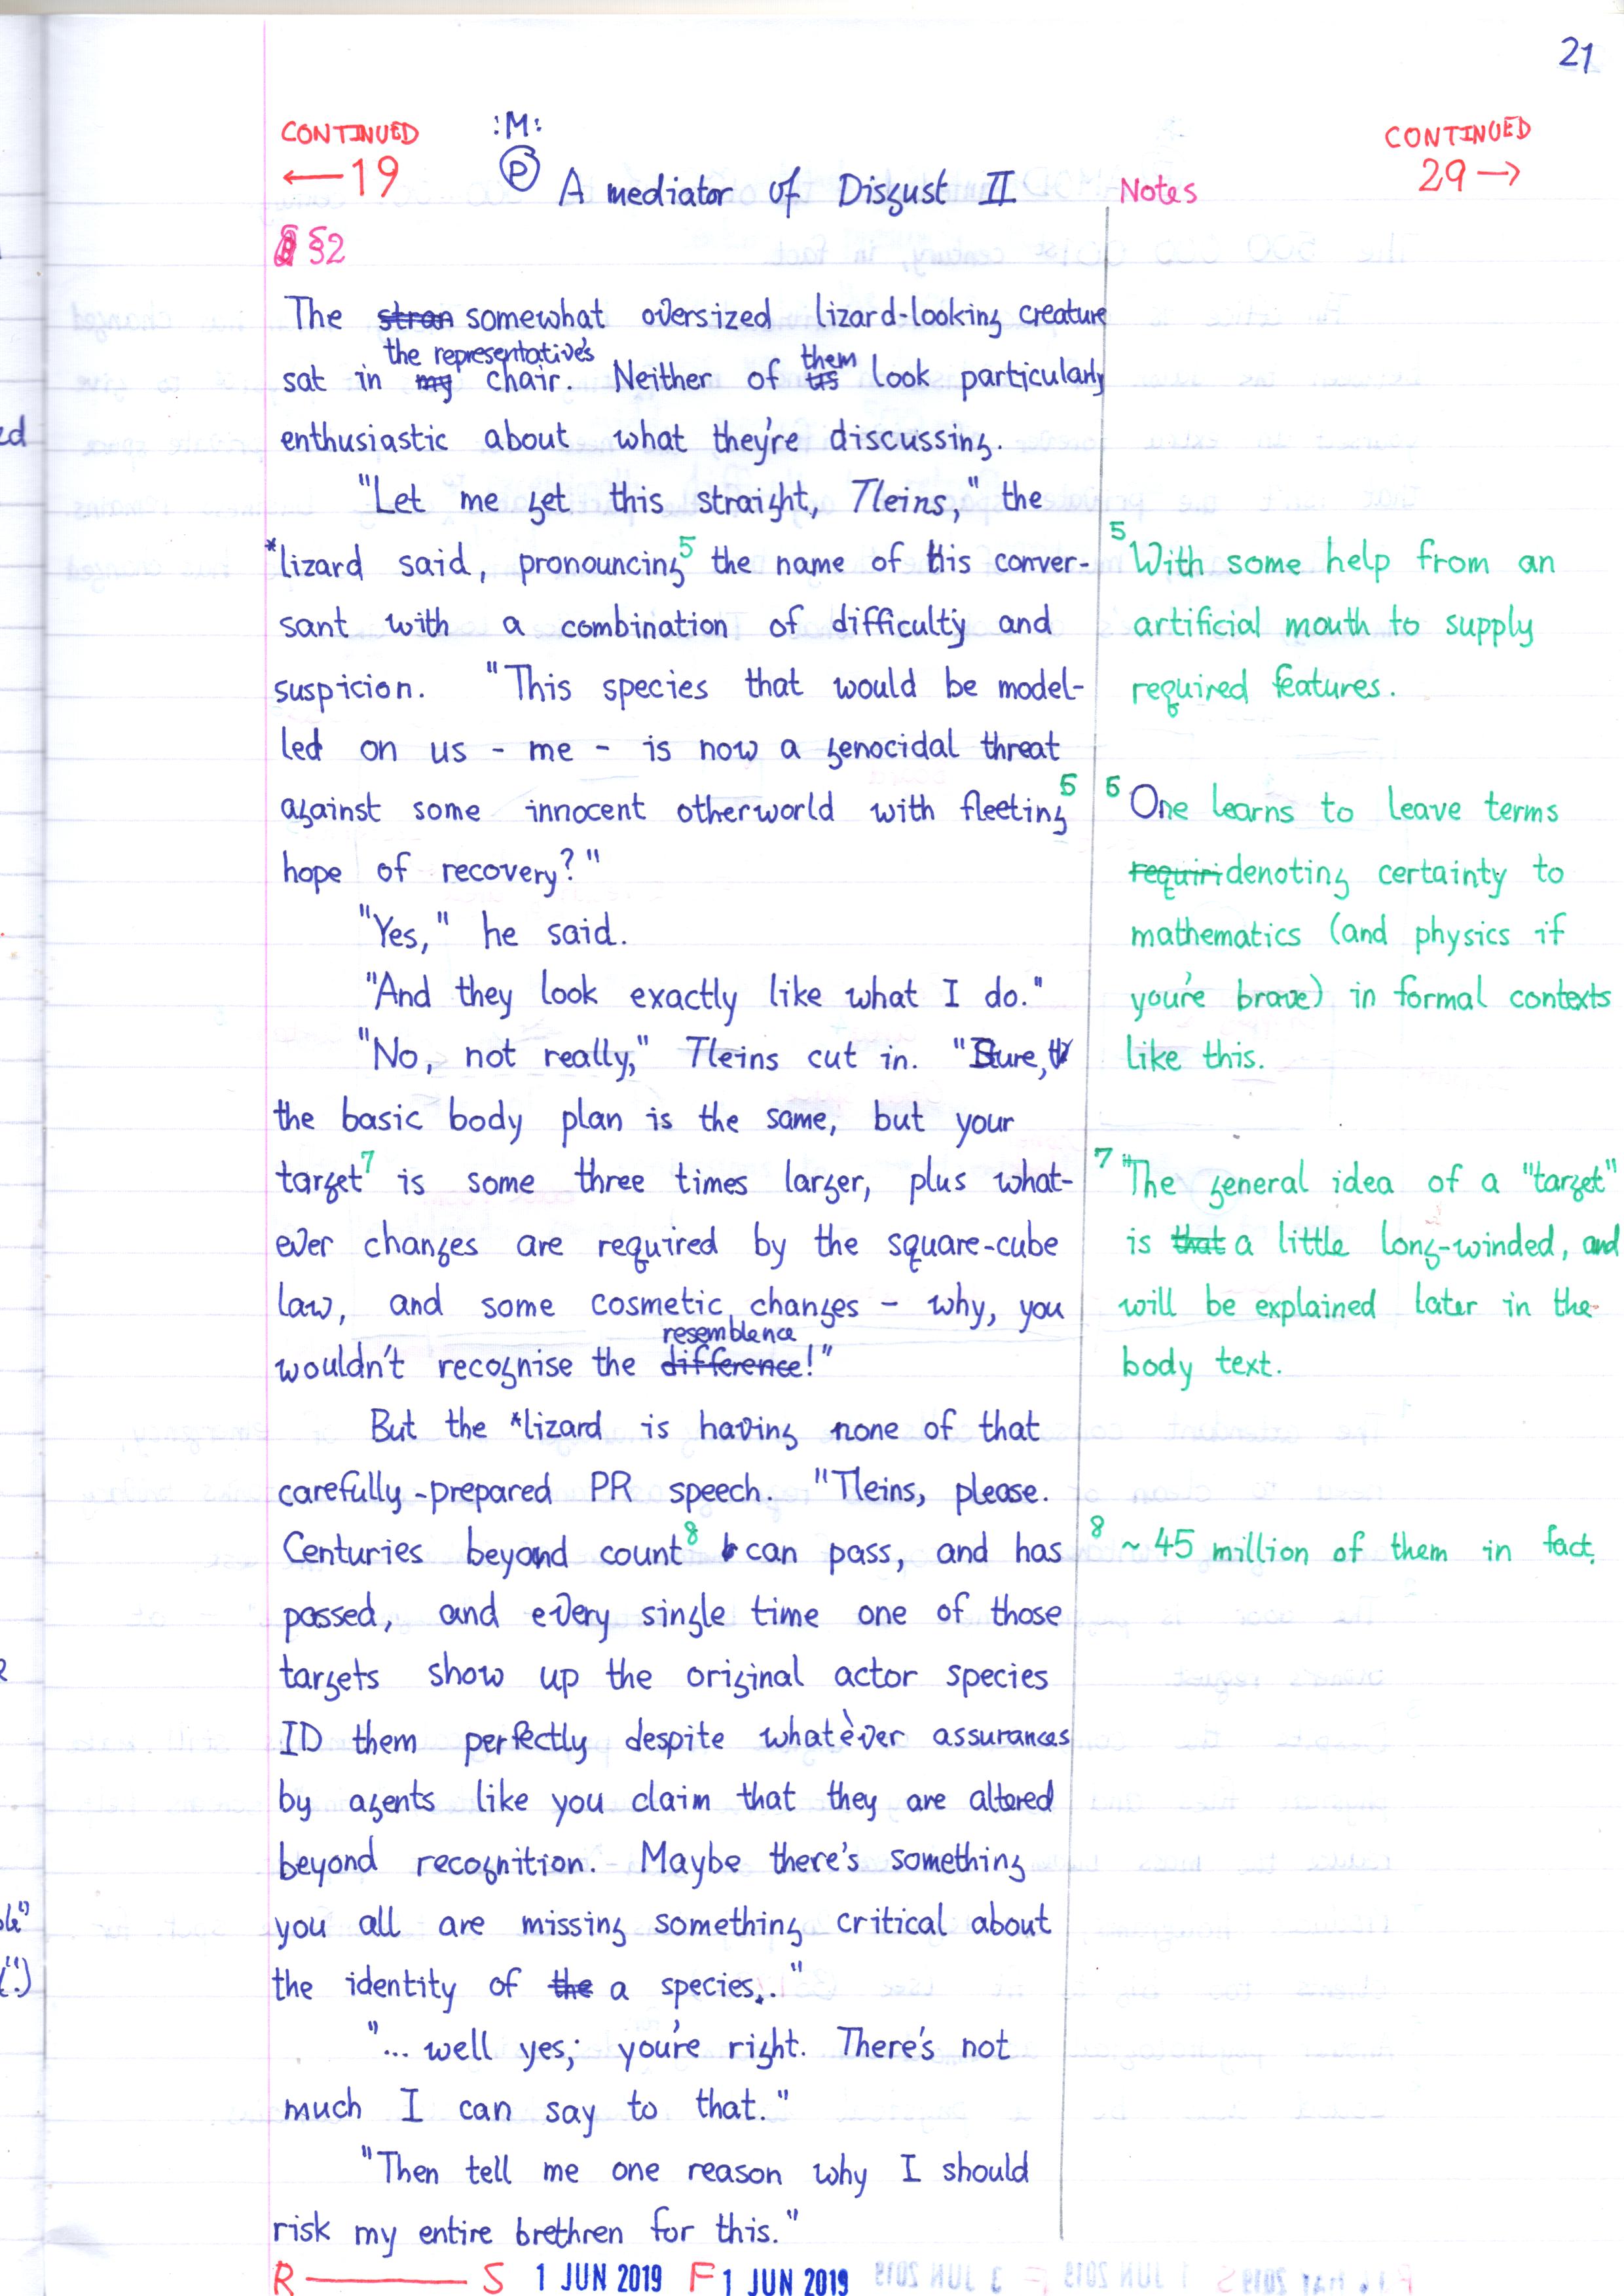 21
CONTINUED
←19
:M:
Ⓟ A mediator of Disgust II
Notes
CONTINUED
29→
§2
The stran somewhat oversized lizard-looking creature
the representative's them
sat in my chair. Neither of us look particularly
enthusiastic about what they're discussing.
"Let me get this straight, Tleins," the
*lizard said, pronouncing⁵ the name of his conver-
sant with a combination of difficulty and
suspicion. "This species that would be model-
led on us - me - is now a genocidal threat
against some innocent otherworld with fleeting⁶
hope of recovery?"
"Yes," he said.
"And they look exactly like what I do."
"No, not really," Tleins cut in. "Sure,
the basic body plan is the same, but your
target⁷ is some three times larger, plus what-
ever changes are required by the square-cube
law, and some cosmetic changes - why, you
resemblence
wouldn't recognise the difference!"
But the *lizard is having none of that
carefully-prepared PR speech. "Tleins, please.
Centuries beyond count⁸ can pass, and has
passed, and every single time one of those
targets show up the original actor species
ID them perfectly despite whatever assurances
by agents like you claim that they are altered
beyond recognition. Maybe there's something
you all are missing something critical about
the identity of the a species.."
"... well yes; you're right. There's not
much I can say to that."
"Then tell me one reason why I should
risk my entire brethren for this."
⁵With some help from an
artificial mouth to supply
required features.
⁶One learns to leave terms
requiri denoting certainty to
mathematics (and physics if
you're brave) in formal contexts
like this.
⁷The general idea of a "target"
is that a little long-winded, and
will be explained later in the
body text.
⁸~45 million of them in fact.
R — S 1 JUN 2019 F 1 JUN 2019